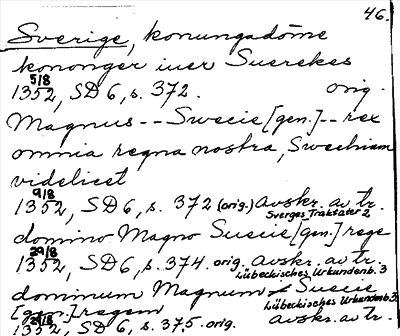 46.
Sverige, konungadöme
kononger iuer Suerekes
5/8
1352, SD 6, s. 372. orig.
Magnus -- Swecie [gen.] -- rex
omnia regna nostra, Swechiam
videlicet
9/8
1352, SD 6, s. 372 (orig.) avskr. av tr.
Sverges Traktater 2
domino Magno Suecie [gen.] rege
29/8
1352, SD 6, s. 374. orig. avskr. av tr.
Lübeckisches Urkundenb. 3
dominum Magnum Suecie
[gen.] regem Lübeckisches Urkundenb. 3
29/8
1352, SD 6, s. 375. orig. avskr. av tr.